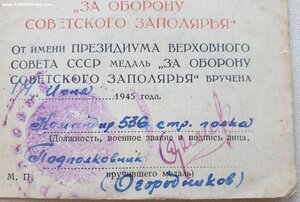 „ЗА ОБОРОНУ
СОВЕТСКОГО ЗАПОЛЯРЬЯ“
ОТ ИМЕНИ ПРЕЗИДИУМА ВЕРХОВНОГО
СОВЕТА СССР МЕДАЛЬ „ЗА ОБОРОНУ
СОВЕТСКОГО ЗАПОЛЯРЬЯ“ ВРУЧЕНА
Июня 1945 года.
Командир 536 стр. полка
(Должность, военное звание и подпись лица,
Подполковник
вручившего медаль)
М. П. (Огородников)